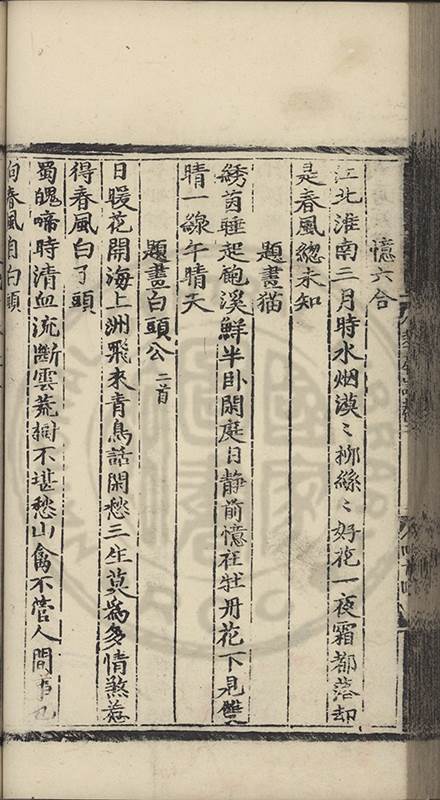 憶六合
江北淮南三月時水烟漠〻柳絲〻好花一夜霜都落却
是春風緫未知
題畫猫
綉茵睡起飽溪鮮半卧閑庭日静前憶在牡丹花下見雙
晴一線午晴天
題畫白頭公二首
日暖花開海上洲飛來青鳥話閑愁三生莫為多情煞惹
得春風白了頭
蜀魄啼時清血流斷雲荒樹不堪愁山禽不管人間事
向春風自白頭